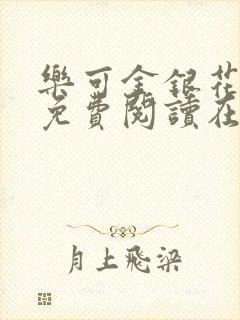 樂可金銀花
免費閱讀在
月上飛梁